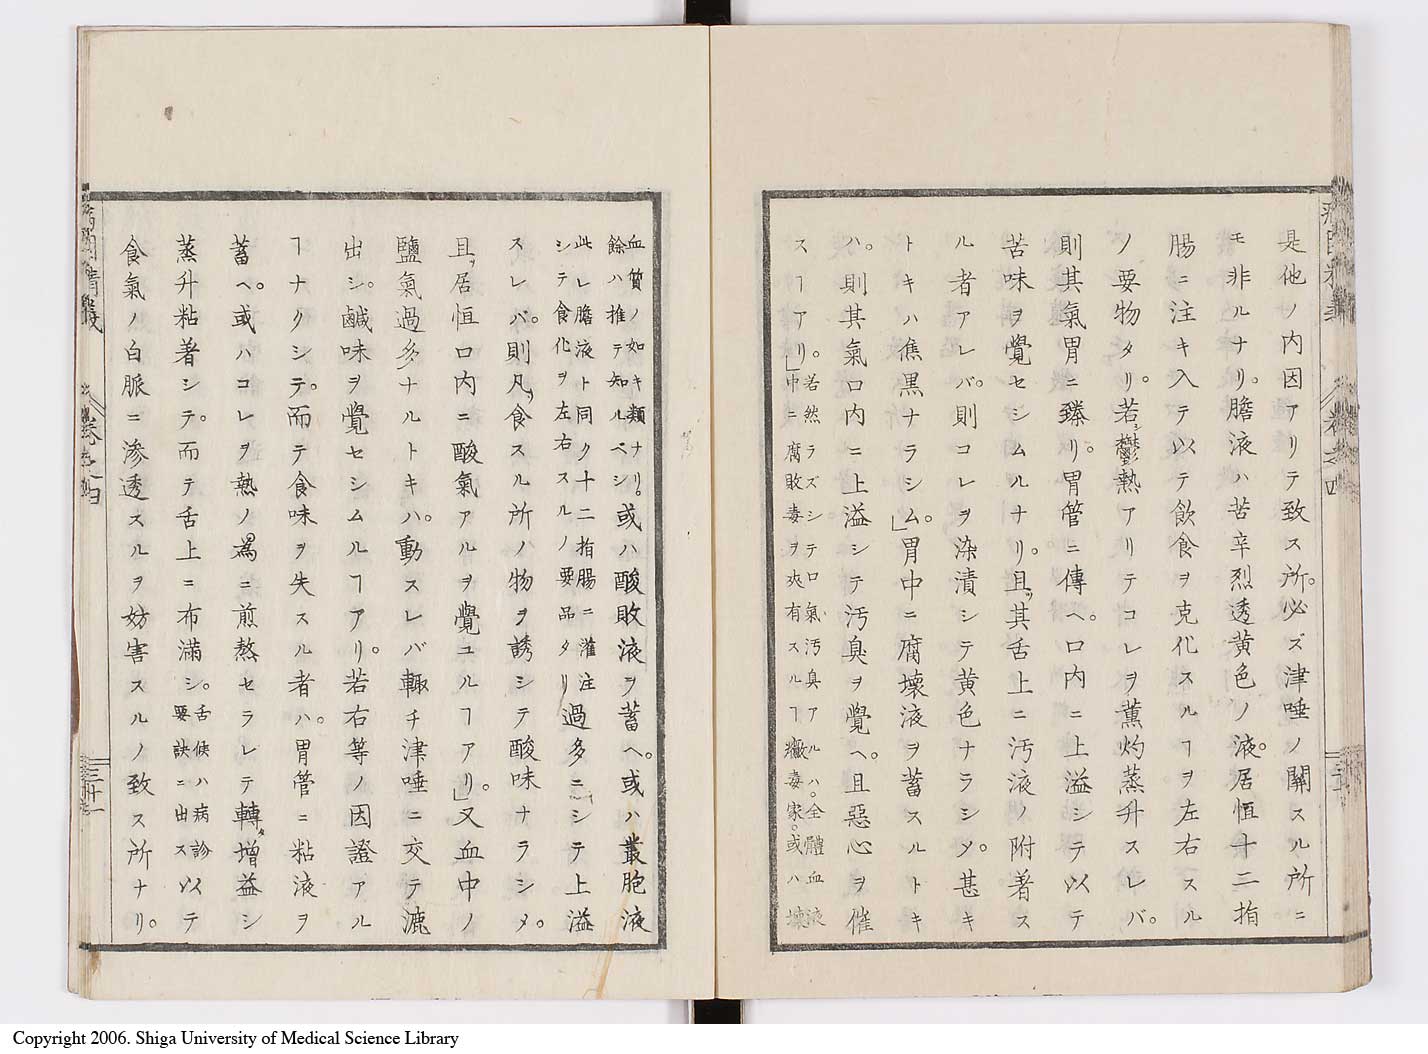 是他ノ内因アリテ致ス所。必ズ津唾ノ關スル所ニ
モ非ルナリ。膽液ハ苦辛烈透黄色ノ液。居恒十二指
腸ニ注キ入テ以テ飲食ヲ克化スルヿヲ左右スル
ノ要物タリ。若シ鬱熱アリテコレヲ薫灼蒸升スレバ。
則其氣胃ニ臻リ。胃管ニ傳ヘ。口内ニ上溢シテ以テ
苦味ヲ覺セシムルナリ。且ツ其舌上ニ汚液ノ附著ス
ル者アレバ。則コレヲ染漬シテ黄色ナラシメ。甚キ
トキハ焦黒ナラシム。」胃中ニ腐壊液ヲ蓄スルトキ
ハ。則其氣口内ニ上溢シテ汚臭ヲ覺ヘ。且惡心ヲ催
スヿアリ。若然ラズシテ口氣汚臭アルハ。全體血液
」中ニ腐敗毒ヲ夾有スルヿ黴毒家。或ハ壊
血質ノ如キ類ナリ。
餘ハ推テ知ルベシ 或ハ酸敗液ヲ蓄ヘ。或ハ叢胞液
此レ膽液ト同ク十二指腸ニ灌注
シテ食化ヲ左右スルノ要品タリ 過多ニシテ上溢
スレバ。則凡ソ食スル所ノ物ヲ誘シテ酸味ナラシメ。
且ツ居恒口内ニ酸氣アルヲ覺ユルヿアリ。」又血中ノ
鹽氣過多ナルトキハ。動スレバ輙チ津唾ニ交テ漉
出シ。鹹味ヲ覺セシムルヿアリ。若右等ノ因證アル
ヿナクシテ。而テ食味ヲ失スル者ハ。胃管ニ粘液ヲ
蓄ヘ。或ハコレヲ熱ノ爲ニ煎熬セラレテ轉タ增益シ
蒸升粘著シテ。而テ舌上ニ布滿シ。舌候ハ病診
要訣ニ出ス 以テ
食氣ノ白脈ニ渗透スルヲ妨害スルノ致ス所ナリ。
卷之四
三十一
Copyright 2006. Shiga University of Medical Science Library